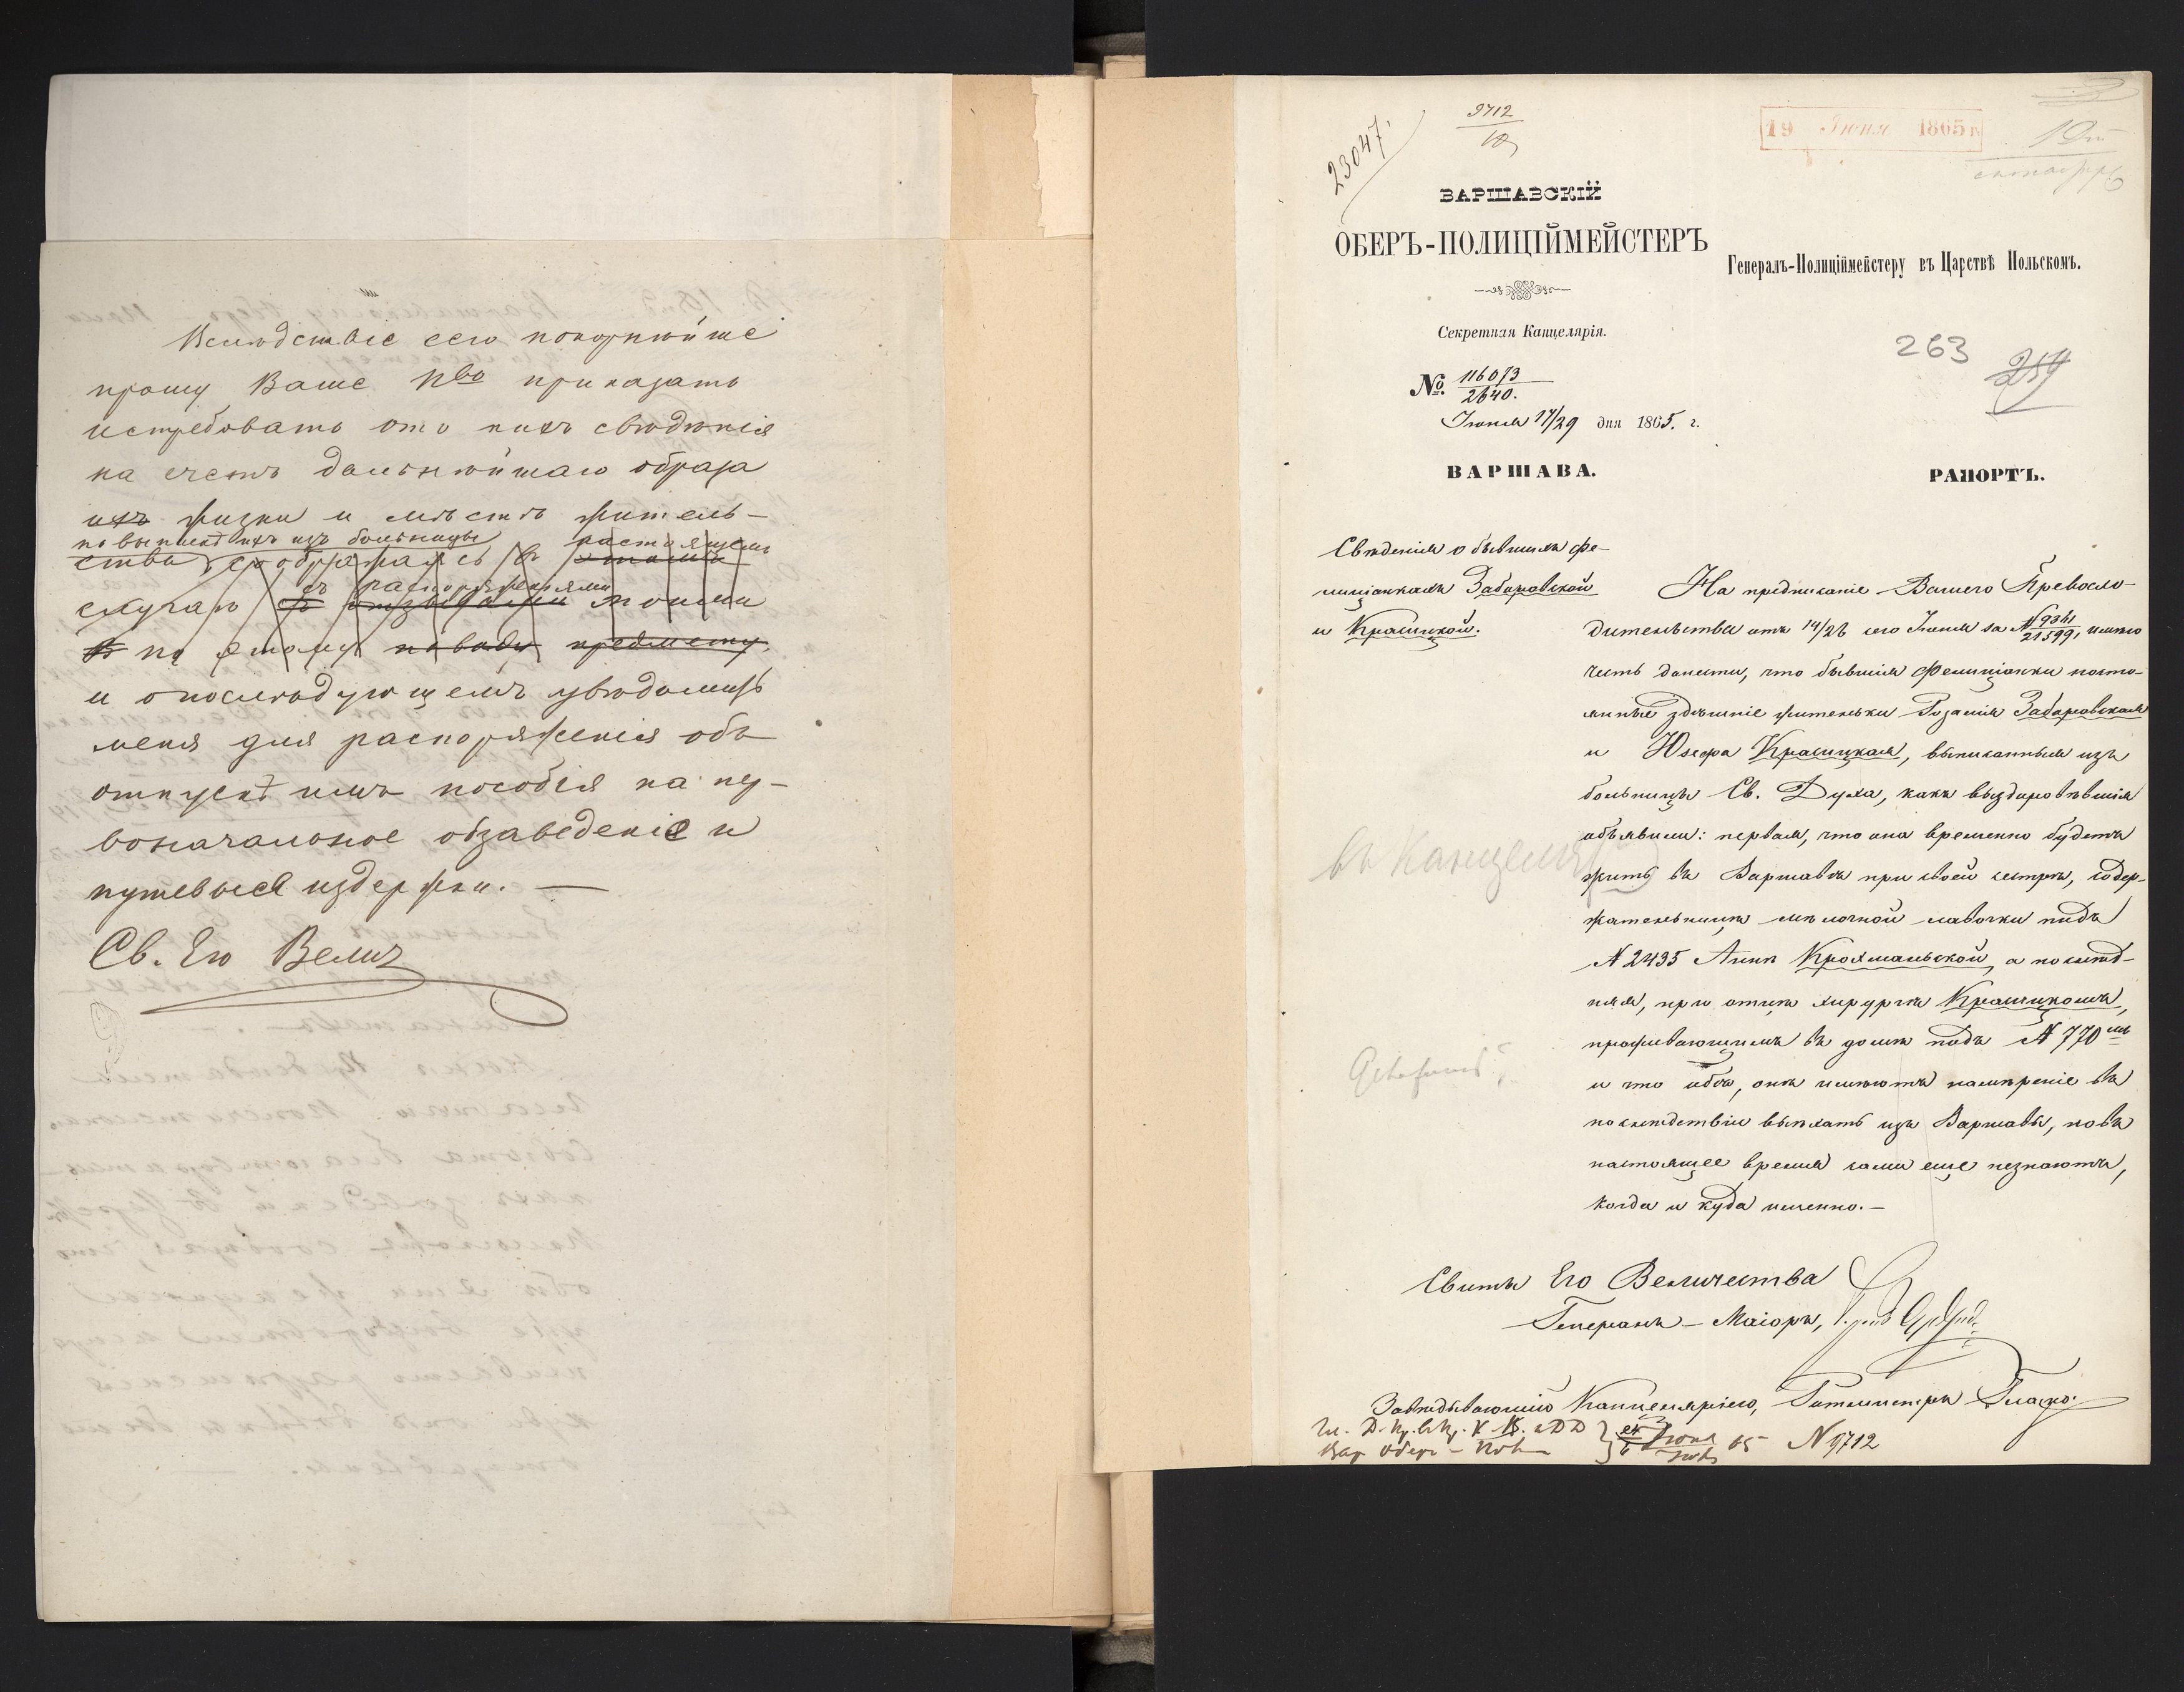 Вслѣдствіе сего покорнѣйше
прошу Ваше Пво приказать
истребовать отъ нихъ свѣдѣнія
на счетъ дальнѣйшаго образа
ихъ жизни и мѣстъ житель-
по выпискѣ ихъ изъ больницы
ства, соображаясь въ настоящемъ
случаѣ съ распоряженіями моими
по этому поводу предмету,
и о послѣдующемъ увѣдомить
меня для распоряженія объ
отпускѣ имъ пособія на пер-
воначальное обзаведеніе и
путевыя издержки. —
Св. Его Велич
23047.
9712
19 Іюня 1865 г.
ВАРШАВСКІЙ
ОБЕРЪ-ПОЛИЦІЙМЕЙСТЕРЪ
Секретная Канцелярія.
№ 116073
2640.
Іюня 17/29 дня 1865. г.
ВАРШАВА.
Генералъ-Полиціймейстеру въ Царствѣ Польскомъ.
263
254
РАПОРТЪ.
Свѣденія о бывшихъ фе-
лиціанкахъ Забаровской
и Красицкой.
На предписаніе Вашего Превосхо-
дительства отъ 14/26 сего Іюня за № 9361/21599, имѣю
честь донести, что бывшія Фелиціанки посто-
янные здѣшніе жительки Розалія Забаровская
и Юзефа Красицкая, выписанныя изъ
больницы Св. Духа, какъ выздоровѣвшія
объявили: первая, что она временно будетъ
жить въ Варшавѣ при своей сестрѣ, содер-
жательницѣ мѣлочной лавочки подъ
№ 2435 Аннѣ Крохмальской, а послѣд-
няя, при отцѣ хирургѣ Красицкомъ,
проживающимъ въ домѣ подъ № 770мъ
и что обѣ, онѣ имѣютъ намѣреніе въ
послѣдствіи выѣхать изъ Варшавы, но въ
настоящее время сами еще незнаютъ,
когда и куда именно. —
въ Канцеляр
Свиты Его Величества
Генералъ-Маіоръ,
Завѣдывающій Канцеляріею, Ротмистръ
Вар Обер-Пол 65 № 9712